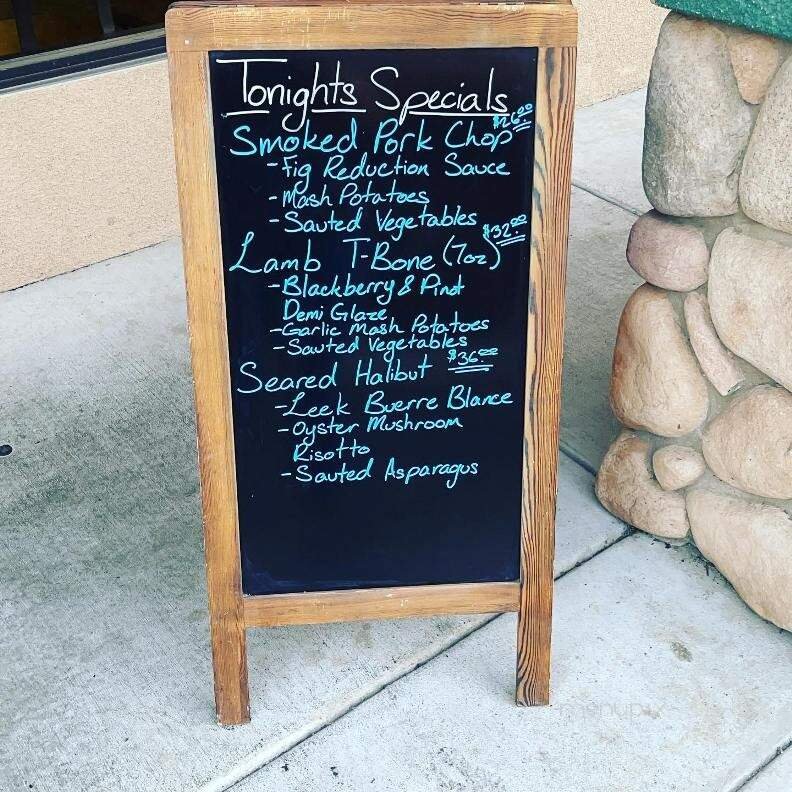 Tonights Specials
Smoked Pork Chop $26.00
- Fig Reduction Sauce
- Mash Potatoes
- Sauted Vegetables
Lamb T-Bone (7oz) $32.00
- Blackberry & Pinot
Demi Glaze
- Garlic Mash Potatoes
- Sauted Vegetables
Seared Halibut $36.00
- Leek Buerre Blance
- Oyster Mushroom
Risotto
- Sauted Asparagus
menupix